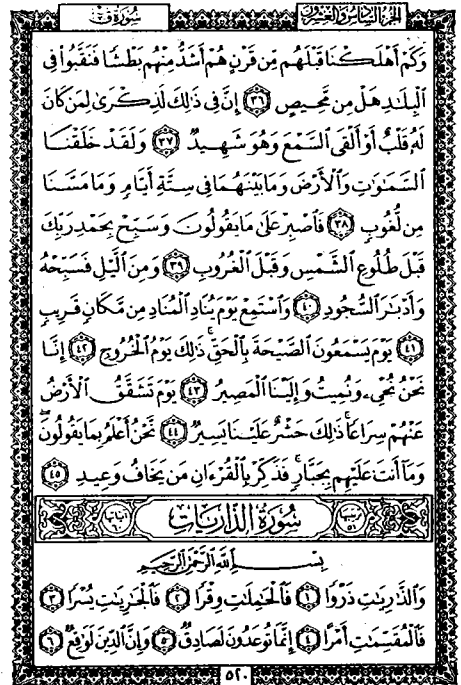 سُورَةُ قٓ
الجزء السادس والعشرون
وَكَمْ أَهْلَكْنَا قَبْلَهُم مِّن قَرْنٍ هُمْ أَشَدُّ مِنْهُم بَطْشًا فَنَقَّبُوا۟ فِى
ٱلْبِلَٰدِ هَلْ مِن مَّحِيصٍ ٣٦ إِنَّ فِى ذَٰلِكَ لَذِكْرَىٰ لِمَن كَانَ
لَهُۥ قَلْبٌ أَوْ أَلْقَى ٱلسَّمْعَ وَهُوَ شَهِيدٌ ٣٧ وَلَقَدْ خَلَقْنَا
ٱلسَّمَٰوَٰتِ وَٱلْأَرْضَ وَمَا بَيْنَهُمَا فِى سِتَّةِ أَيَّامٍ وَمَا مَسَّنَا
مِن لُّغُوبٍ ٣٨ فَٱصْبِرْ عَلَىٰ مَا يَقُولُونَ وَسَبِّحْ بِحَمْدِ رَبِّكَ
قَبْلَ طُلُوعِ ٱلشَّمْسِ وَقَبْلَ ٱلْغُرُوبِ ٣٩ وَمِنَ ٱلَّيْلِ فَسَبِّحْهُ
وَأَدْبَٰرَ ٱلسُّجُودِ ٤٠ وَٱسْتَمِعْ يَوْمَ يُنَادِ ٱلْمُنَادِ مِن مَّكَانٍ قَرِيبٍ
٤١ يَوْمَ يَسْمَعُونَ ٱلصَّيْحَةَ بِٱلْحَقِّ ۚ ذَٰلِكَ يَوْمُ ٱلْخُرُوجِ ٤٢ إِنَّا
نَحْنُ نُحْىِۦ وَنُمِيتُ وَإِلَيْنَا ٱلْمَصِيرُ ٤٣ يَوْمَ تَشَقَّقُ ٱلْأَرْضُ
عَنْهُمْ سِرَاعًا ۚ ذَٰلِكَ حَشْرٌ عَلَيْنَا يَسِيرٌ ٤٤ نَّحْنُ أَعْلَمُ بِمَا يَقُولُونَ ۖ
وَمَآ أَنتَ عَلَيْهِم بِجَبَّارٍ ۖ فَذَكِّرْ بِٱلْقُرْءَانِ مَن يَخَافُ وَعِيدِ ٤٥
سُورَةُ الذَّارِيَاتِ
بِسْمِ ٱللَّهِ ٱلرَّحْمَٰنِ ٱلرَّحِيمِ
وَٱلذَّٰرِيَٰتِ ذَرْوًا ١ فَٱلْحَٰمِلَٰتِ وِقْرًا ٢ فَٱلْجَٰرِيَٰتِ يُسْرًا ٣
فَٱلْمُقَسِّمَٰتِ أَمْرًا ٤ إِنَّمَا تُوعَدُونَ لَصَادِقٌ ٥ وَإِنَّ ٱلدِّينَ لَوَٰقِعٌ ٦
٥٢٠